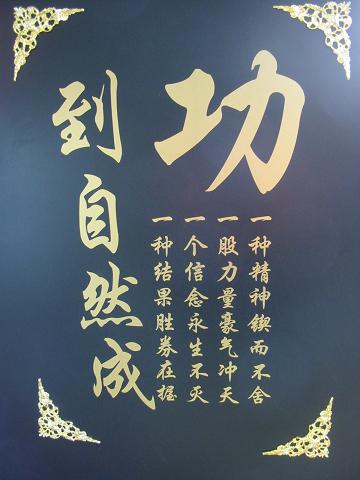 功
到自然成
一种精神锲而不舍
一股力量豪气冲天
一个信念永生不灭
一种结果胜券在握